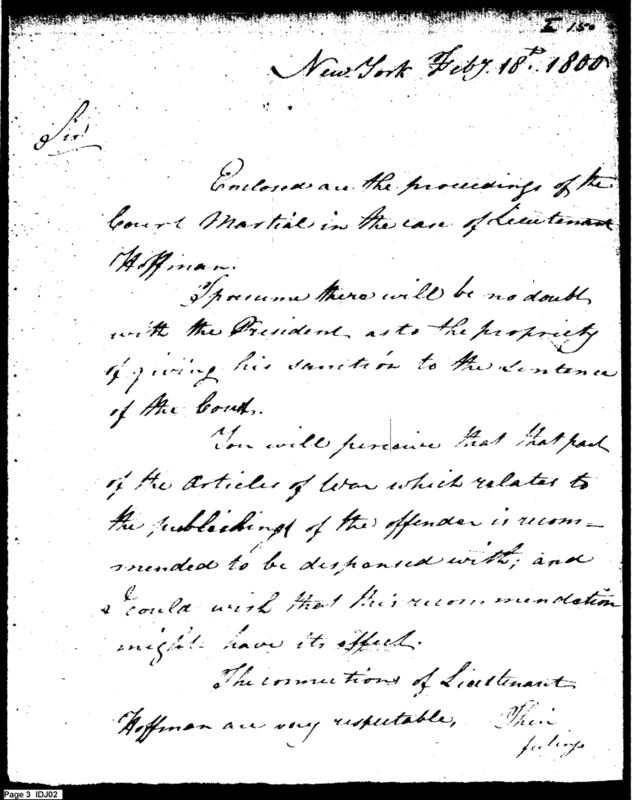 I 150
New York Feby. 18th. 1800
Sir
Enclosed are the proceedings of the
Court Martial in the case of Lieutenant
Hoffman.
I presume there will be no doubt
with the President as to the propriety
of giving his sanction to the sentence
of the Court.
You will perceive that that part
of the Articles of War which relates to
the publishing of the offender is recom-
mended to be dispensed with; and
I could wish that this recommendation
might have its effect.
The connections of Lieutenant
Hoffman are very respectable, Their
feelings
Page 3 IDJ02